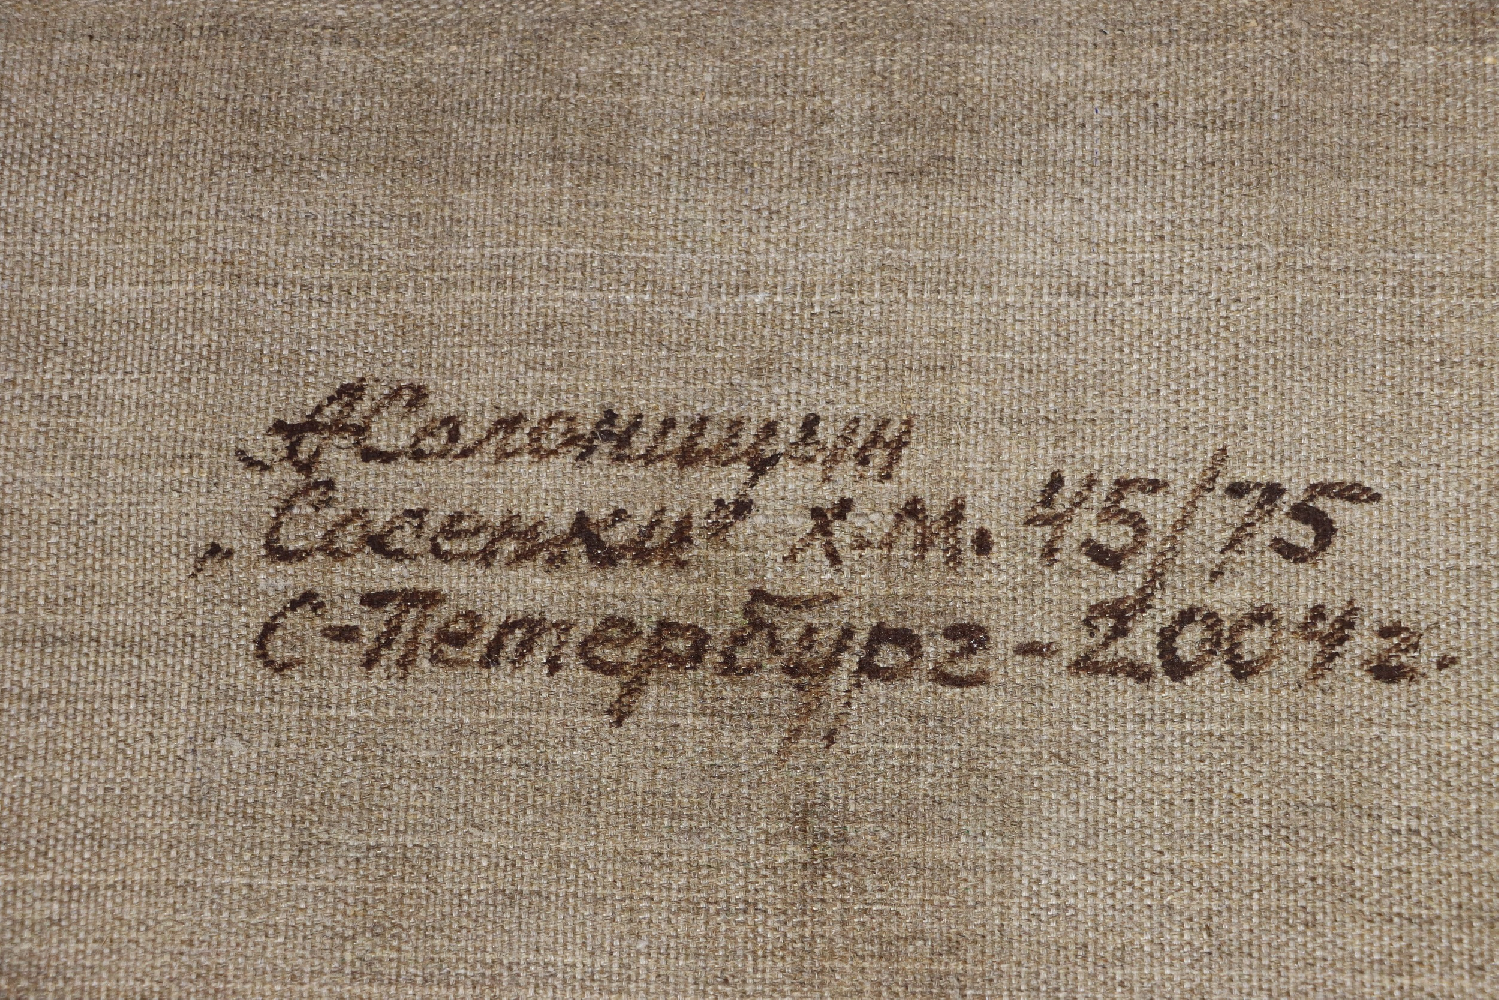 А Солоницын
„Сосенки" х.м. 45/75
С-Петербург-2004г.